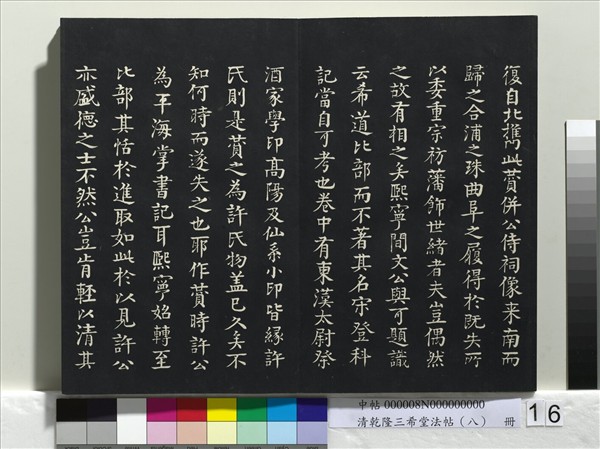 復自北攜此賛併公侍祠像来南而
歸之合浦之珠曲阜之履得於既失所
以委重宗祊藩飾世緒者夫豈偶然
之故有相之矣熙寧間文公與可題識
云希道比部而不著其名宋登科
記當自可考也卷中有東漢太尉祭
酒家學印高陽及仙系小印皆緣許
氏則是賛之為許氏物盖已久矣不
知何時而遂失之也耶作賛時許公
為平海掌書記耳熙寧始轉至
比部其恬於進取如此於以見許公
亦盛德之士不然公豈肯輕以清其
中帖 000008N000000000
清乾隆三希堂法帖（八） 冊
16